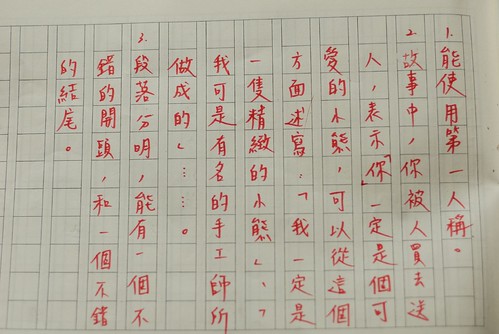 1.能使用第一人稱。
2.故事中,你被人買去送
人,表示「你」一定是個可
愛的小熊,可以從這個
方面述寫:「我一定是
一隻精緻的小熊」、「
我可是有名的手工師所
做成的」……。
3.段落分明,能有一個不
錯的開頭,和一個不錯
的結尾。